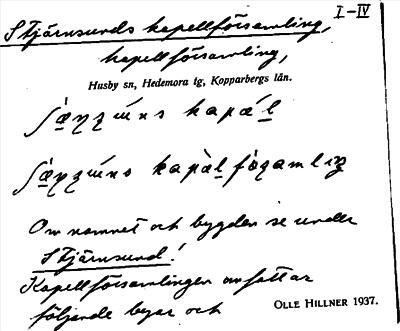 Stjärnsunds kapellförsamling, I–IV
kapellförsamling,
Husby sn, Hedemora tg, Kopparbergs län.
Om namnet och bygden se under
Stjärnsund!
Kapellförsamlingen omfattar
följande byar och
OLLE HILLNER 1937.